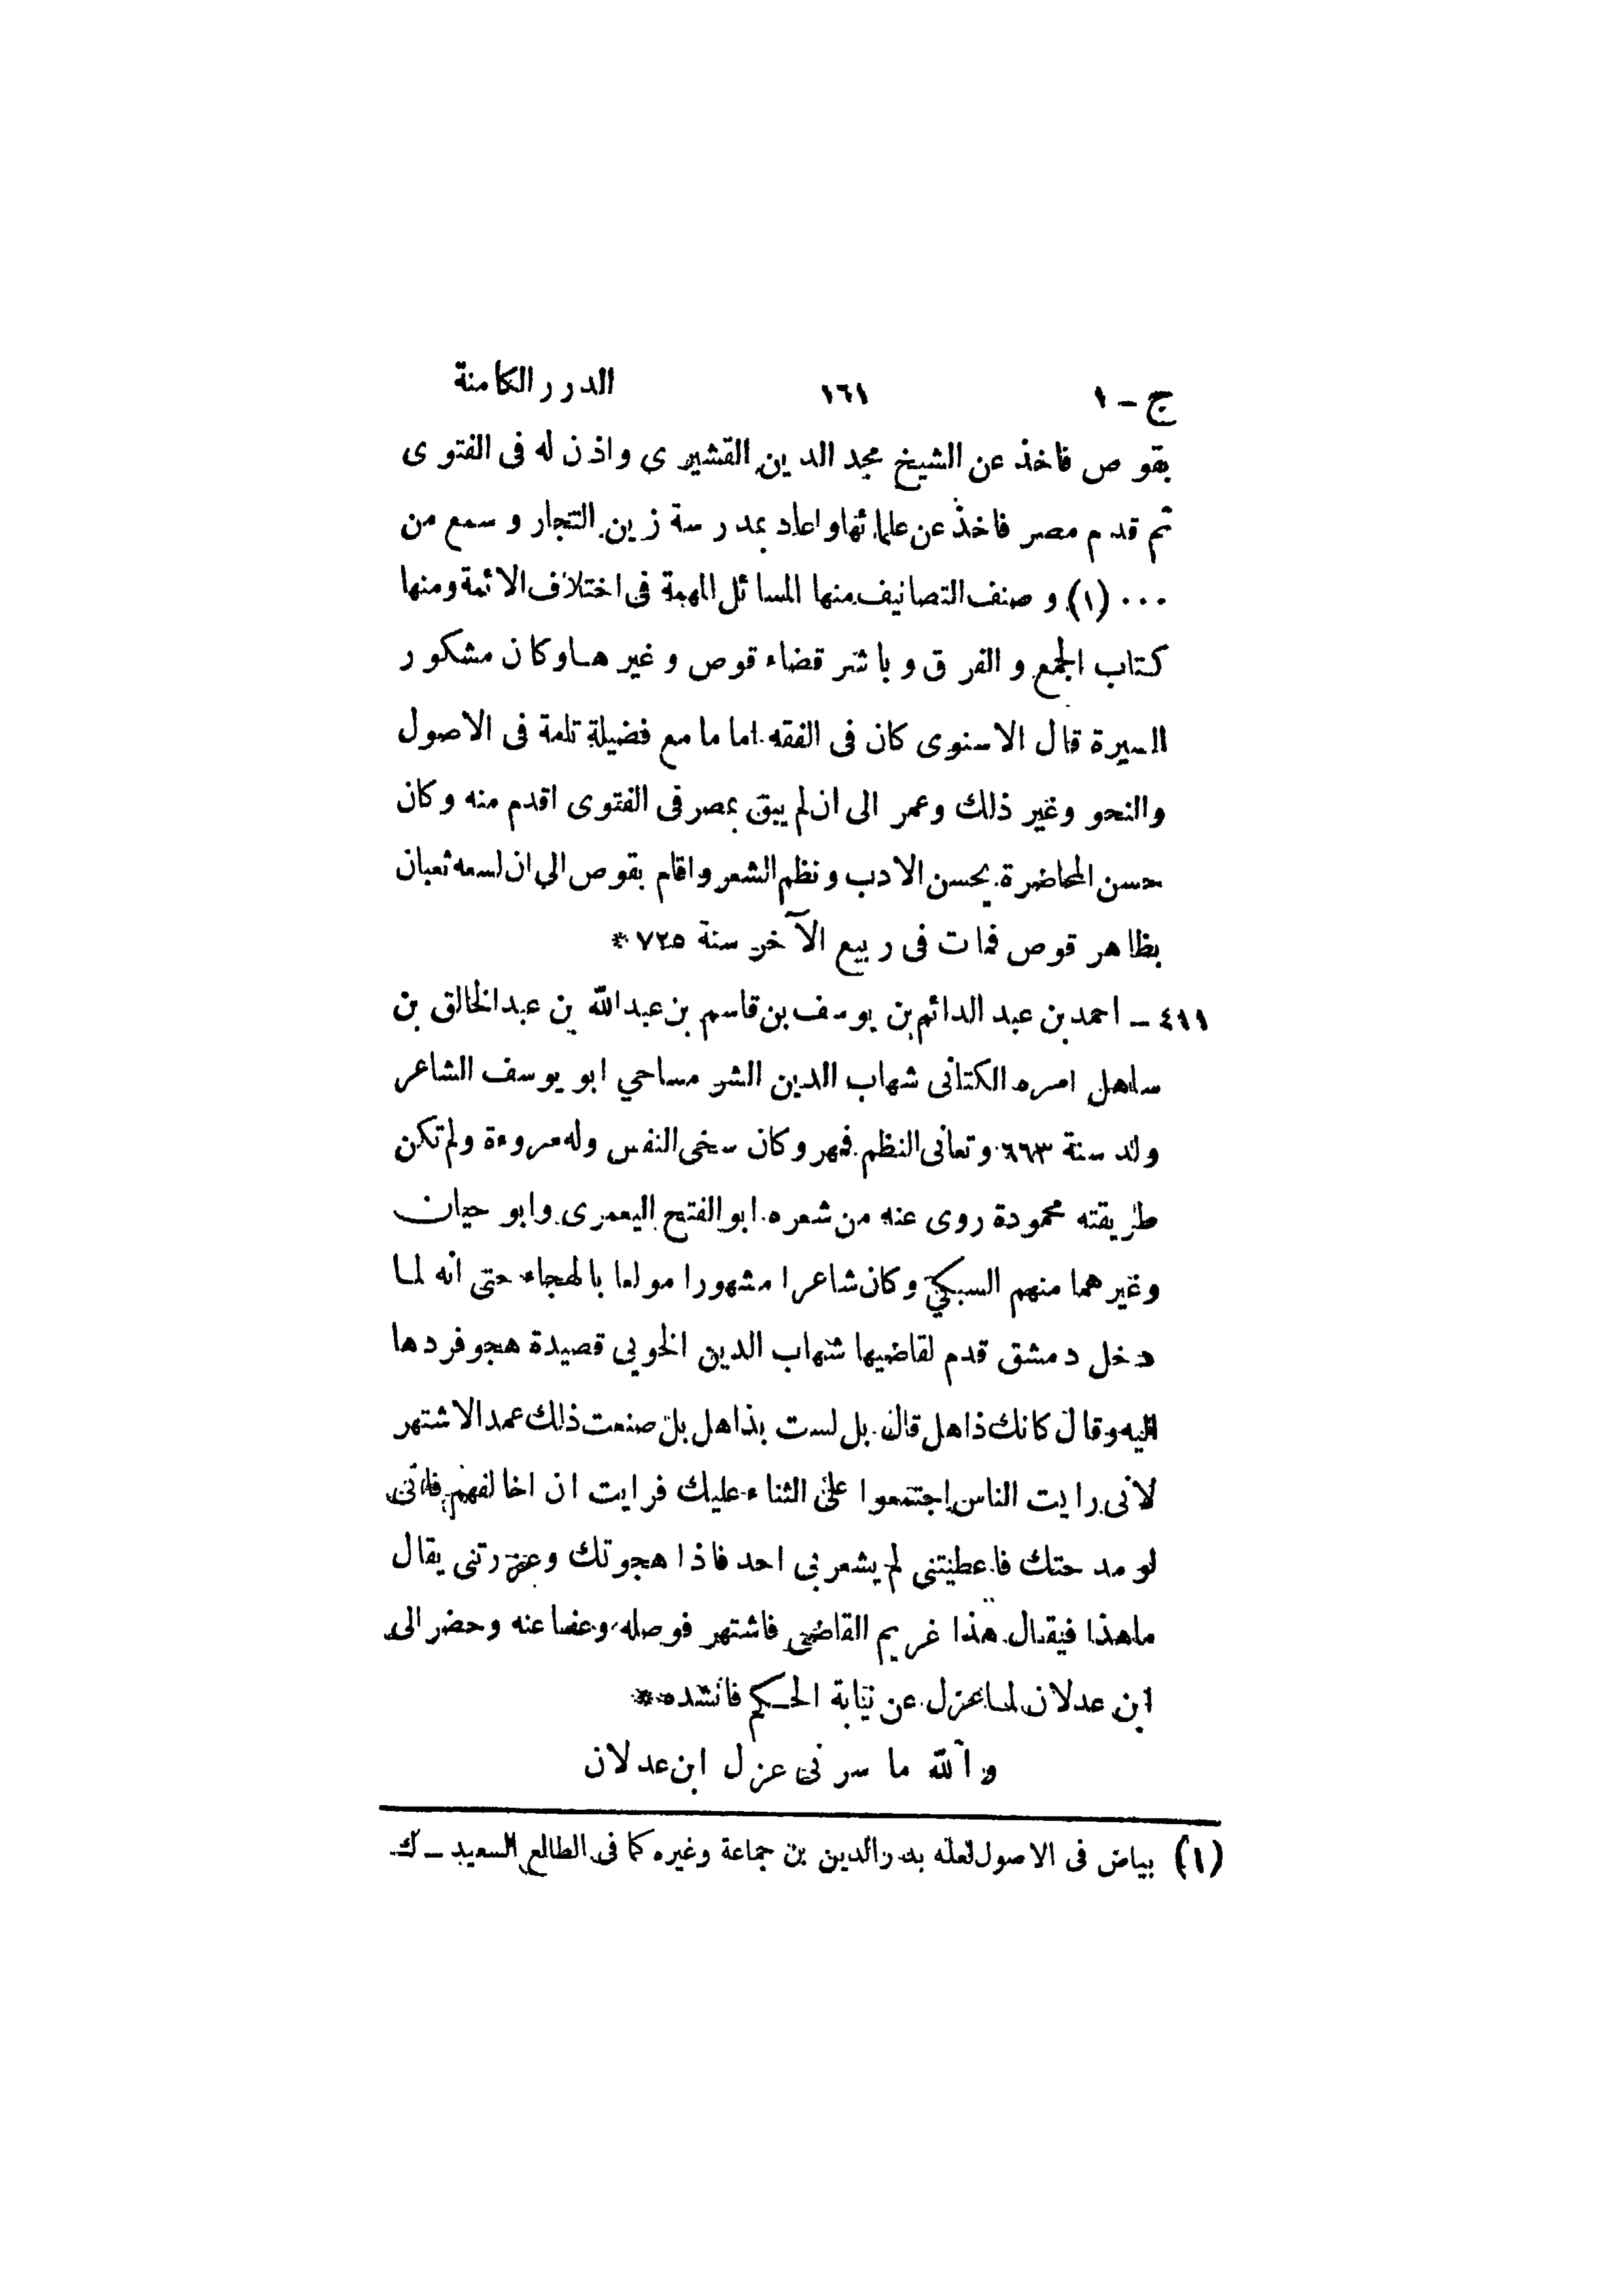 ج - ١ ١٦١ الدرر الكامنة
بقوص فاخذ عن الشيخ مجد الدين القشيرى واذن له فى الفتوى
ثم قدم مصر فاخذ عن علمائها واعاد بمدرسة زين التجار وسمع من
... (١) و صنف التصانيف منها المسائل المهمة فى اختلاف الائمة ومنها
كتاب الجمع والفرق وباشر قضاء قوص وغيرها وكان مشكور
السيرة قال الاسنوى كان فى الفقه اماما مع فضيلة تامة فى الاصول
والنحو وغير ذلك وعمر الى ان لم يبق بمصر فى الفتوى اقدم منه وكان
حسن المحاضرة يحسن الادب ونظم الشعر واقام بقوص الى ان لسعه ثعبان
بظاهر قوص فمات فى ربيع الآخر سنة ٧٢٥ *
٤١١ - احمد بن عبد الدائم بن يوسف بن قاسم بن عبدالله بن عبدالخالق بن
ساهل امره الكتانى شهاب الدين الشرمساحي ابو يوسف الشاعر
ولد سنة ٦٦٣ وتعانى النظم فمهر وكان سخى النفس وله مروءة ولم تكن
طريقته محمودة روى عنه من شعره ابو الفتح اليعمرى وابو حيان
وغيرهما منهم السبكي وكان شاعرا مشهورا مولعا بالهجاء حتى انه لما
دخل دمشق قدم لقاضيها شهاب الدين الخويى قصيدة هجو فردها
اليه وقال كانك ذاهل قال بل لست بذاهل بل صنعت ذلك عمدا لاشتهر
لانى رايت الناس اجتمعوا على الثناء عليك فرايت ان اخالفهم فانى
لو مدحتك فاعطيتنى لم يشعر بى احد فاذا هجوتك وعزرتنى يقال
ماهذا فيقال هذا غريم القاضى فاشتهر فوصله وعفا عنه وحضر الى
ابن عدلان لما عزل عن نيابة الحكم فانشده *
والله ما سرنى عزل ابن عدلان
(١) بياض فى الاصول لعله بدر الدين بن جماعة وغيره كما فى الطالع السعيد - ك